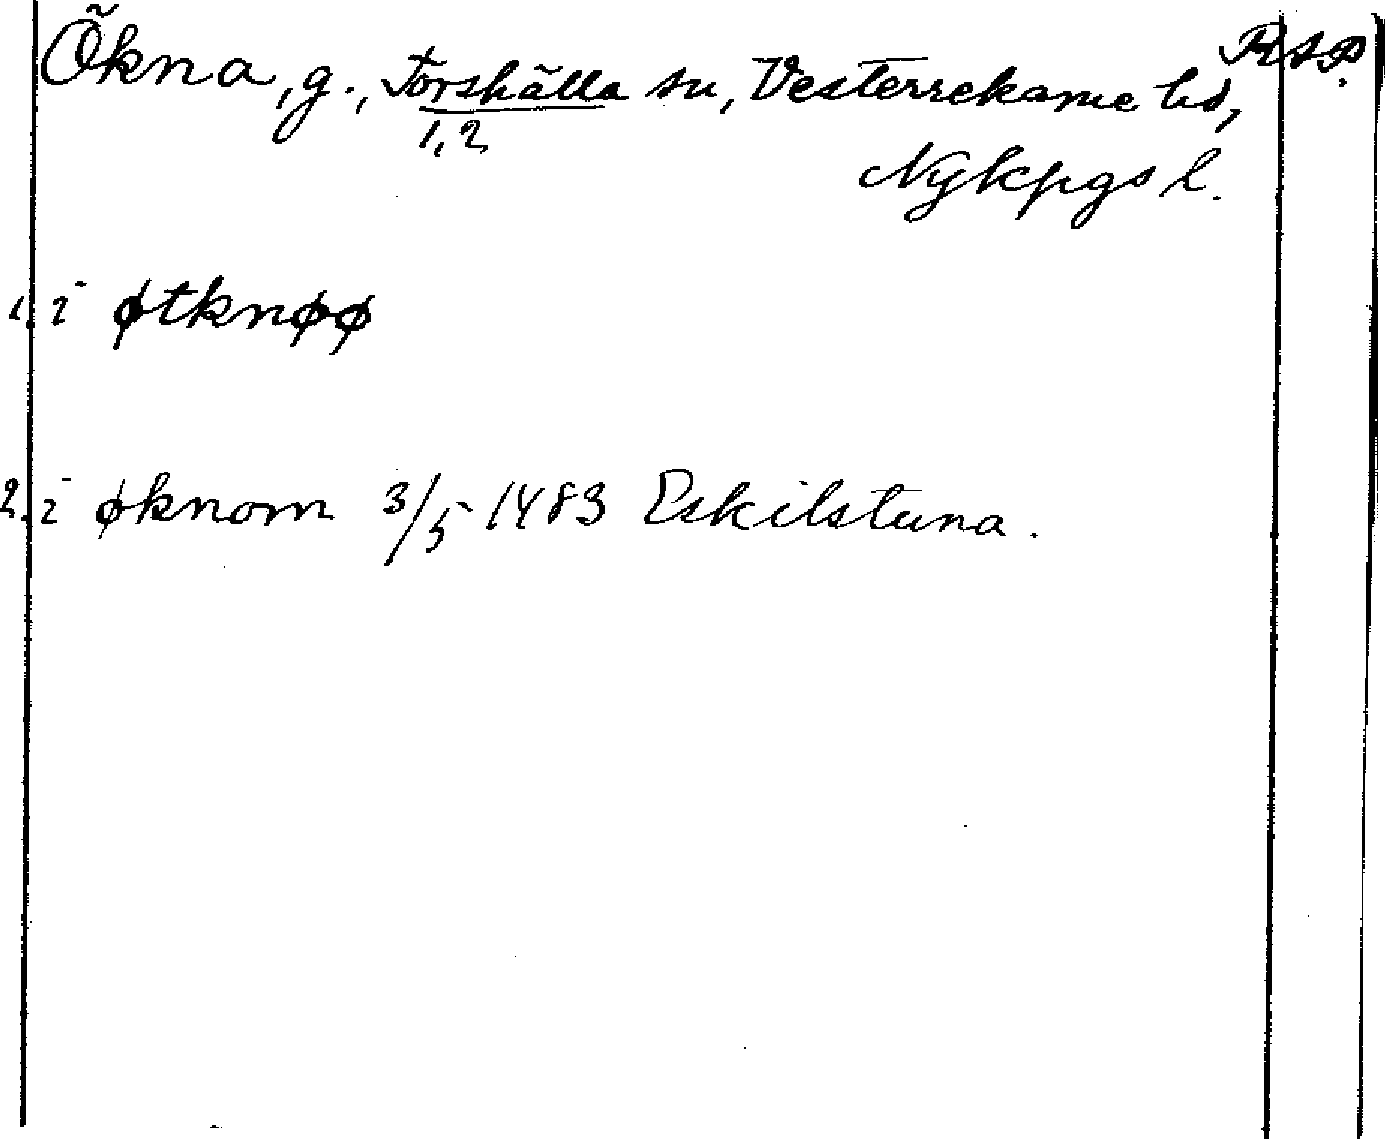 RSP.
Õkna, g., Torshälla sn, Vesterrekarne hd,
1, 2
Nykpgs l.
1. i øtknøø
2. i øknom 3/5 1483 Eskilstuna.